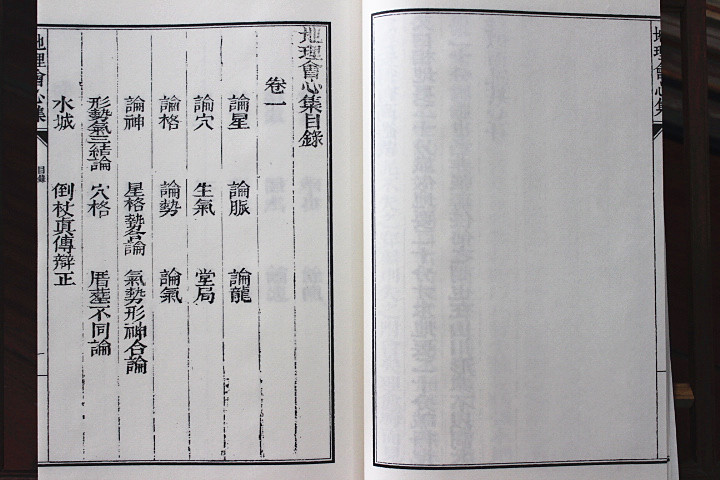 地理會心集
地理會心集目錄
卷一
論星 論脈 論龍
論穴 生氣 堂局
論格 論勢 論氣
論神 星格勢各論 氣勢形神合論
形勢氣三結論 穴格 厝塟不同論
水城 倒杖眞傳辯正
地理會心集 目錄 一